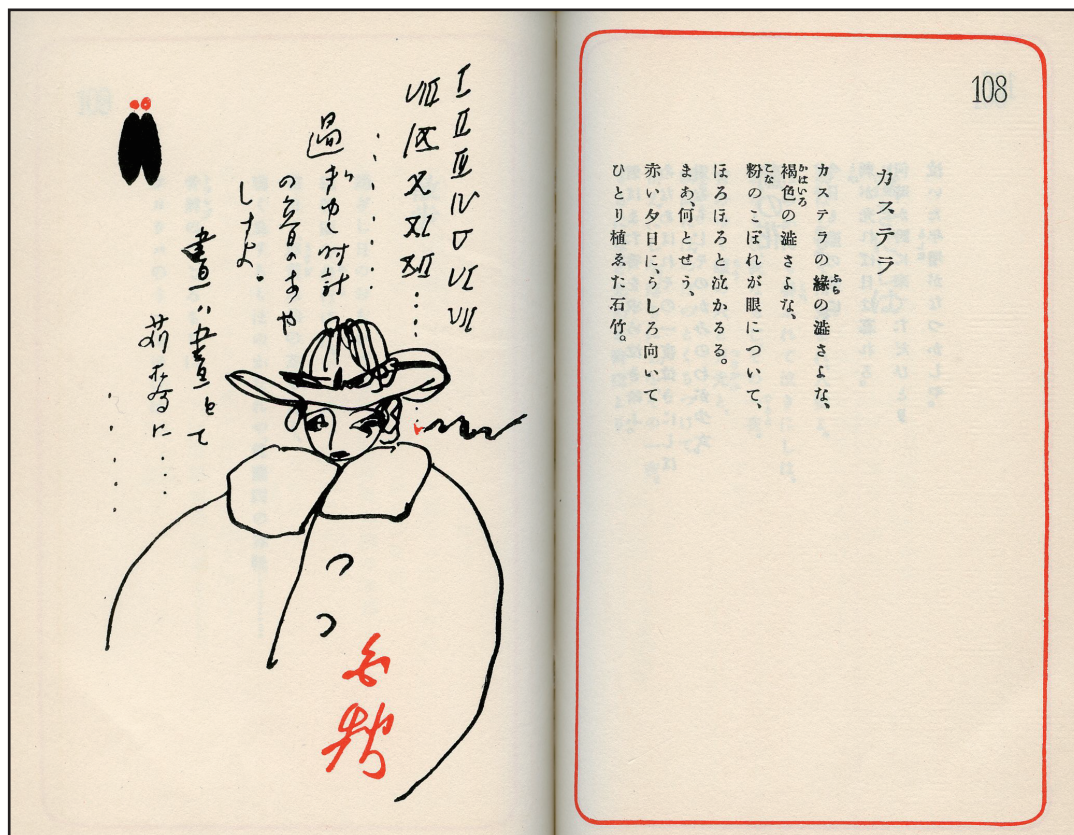 108
カステラ
カステラの緣の澁さよな、
ふち
褐色の澁さよな、
かはいろ
粉のこぼれが眼について、
こな
ほろほろと泣かるる。
まあ、何とせう、
赤い夕日に、うしろ向いて
ひとり植ゑた石竹。
I II III IV V VI VII
VIII IX X XI XII……
過ぎゆく時計
の音のあや
しさよ。
晝ハ晝とて
白秋